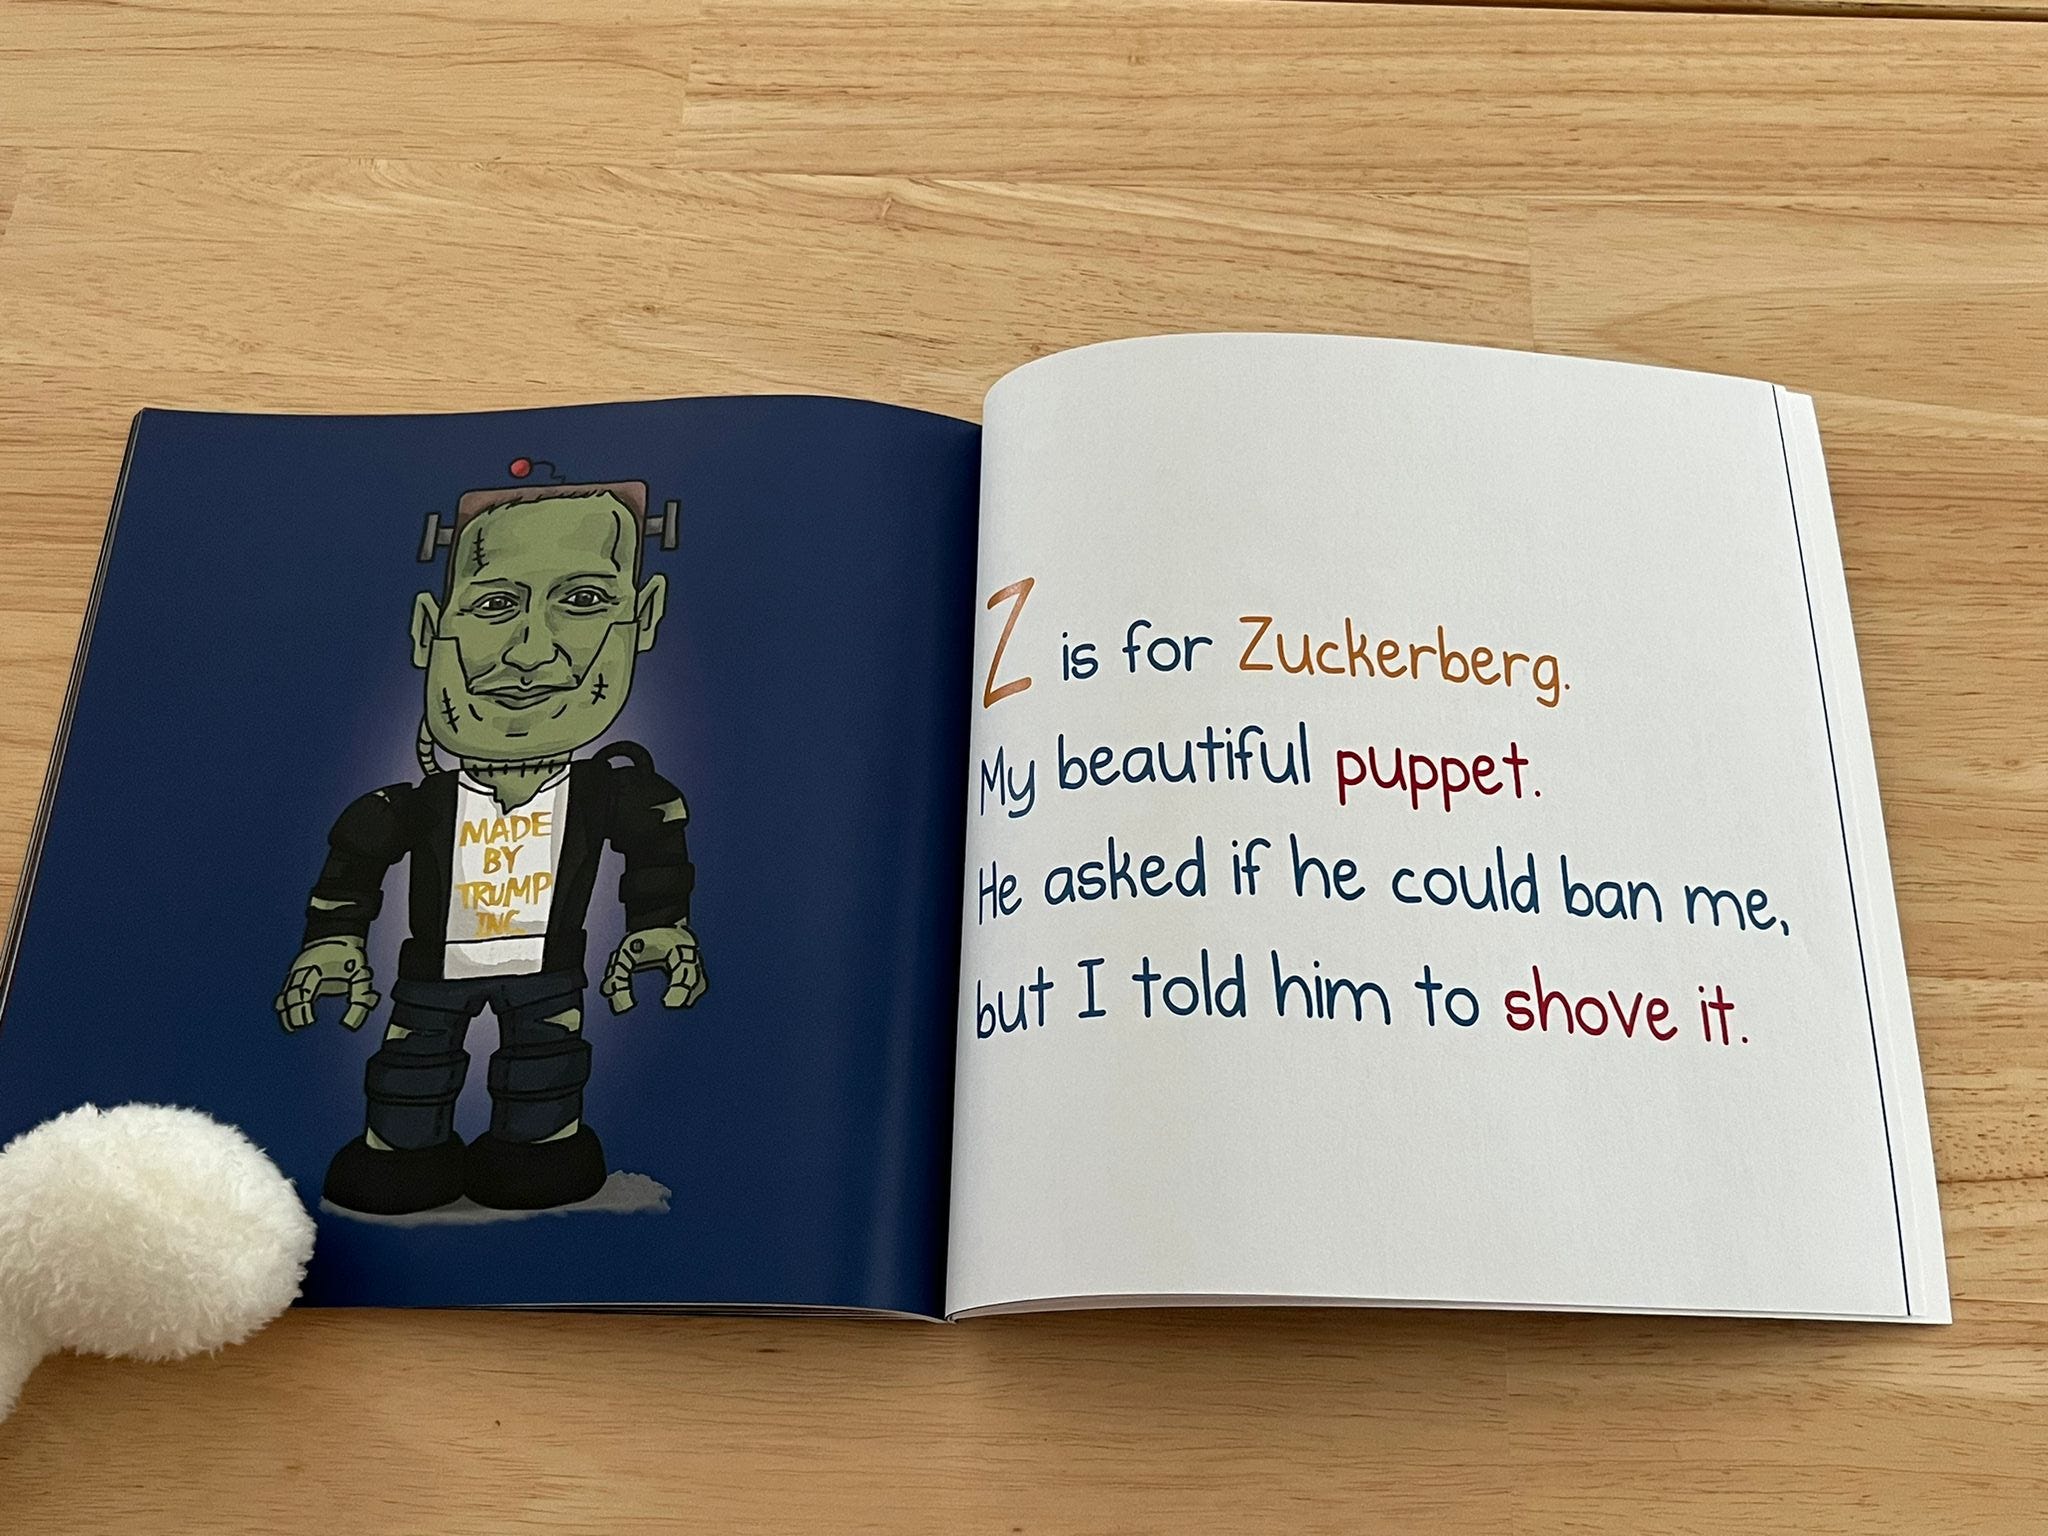 MADE
BY
TRUMP
INC.
Z is for Zuckerberg.
My beautiful puppet.
He asked if he could ban me,
but I told him to shove it.